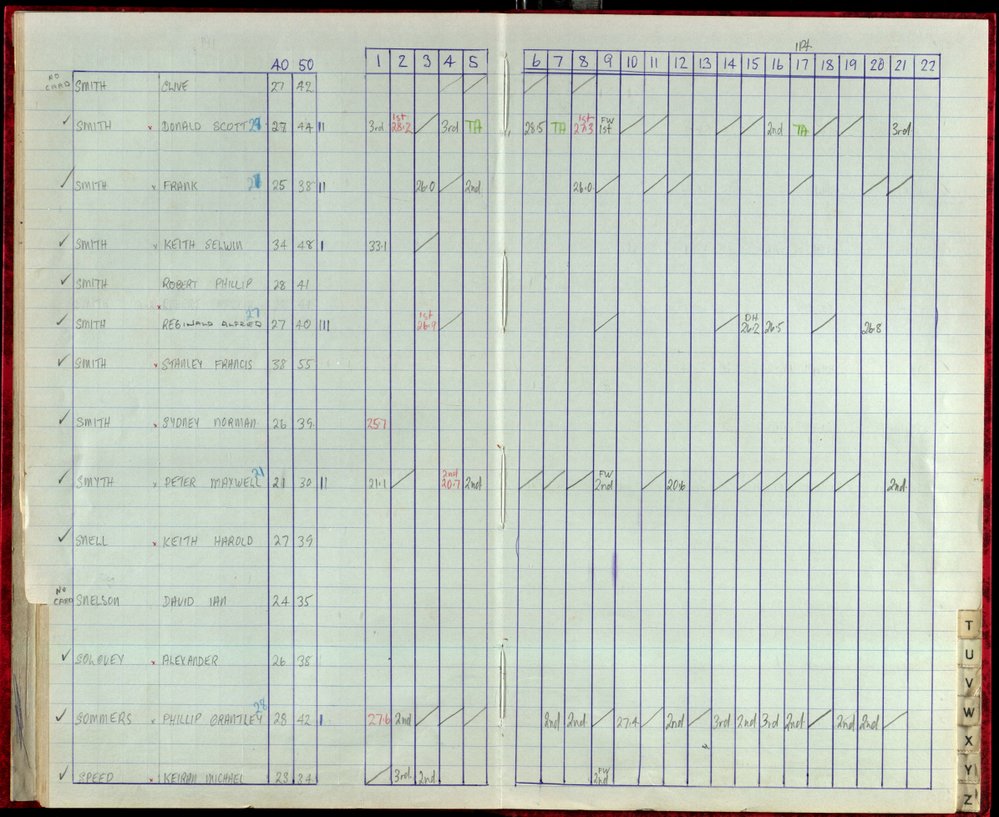 1Pt.
40 50 1 2 3 4 5 6 7 8 9 10 11 12 13 14 15 16 17 18 19 20 21 22
NO CARD SMITH CLIVE 27 42 / / / /
✓ SMITH x DONALD SCOTT 27 44 || 3rd 1st 28.2 / 3rd TA 28.5 TA 1st 27.3 FW 1st / / / / 2nd TA / / 3rd
✓ SMITH x FRANK 25 38 || 26.0 / 2nd 26.0 / / / / / /
✓ SMITH x KEITH SELWIN 34 48 | 33.1 /
✓ SMITH ROBERT PHILLIP 28 41
✓ SMITH x REGINALD ALFRED 27 27 40 ||| 1st 26.9 / / / DH 26.2 26.5 / 26.8
✓ SMITH x STANLEY FRANCIS 38 55
✓ SMITH x SYDNEY NORMAN 26 39 25.7
✓ SMYTH x PETER MAXWELL 21 21 30 || 21.1 / 2nd 20.7 2nd / / / FW 2nd / 20.6 / / / / / / 2nd
✓ SNELL x KEITH HAROLD 27 39
NO CARD SNELSON DAVID IAN 24 35
✓ SOLOVEY x ALEXANDER 26 38
✓ SOMMERS x PHILLIP GRANTLEY 28 28 42 | 27.6 2nd / / / 2nd 2nd / 27.4 / 2nd / 3rd 2nd 3rd 2nd / 2nd 2nd /
✓ SPEED x KEIRAN MICHAEL 23 34 / 3rd 2nd FW 2nd
T
U
V
W
X
Y
Z